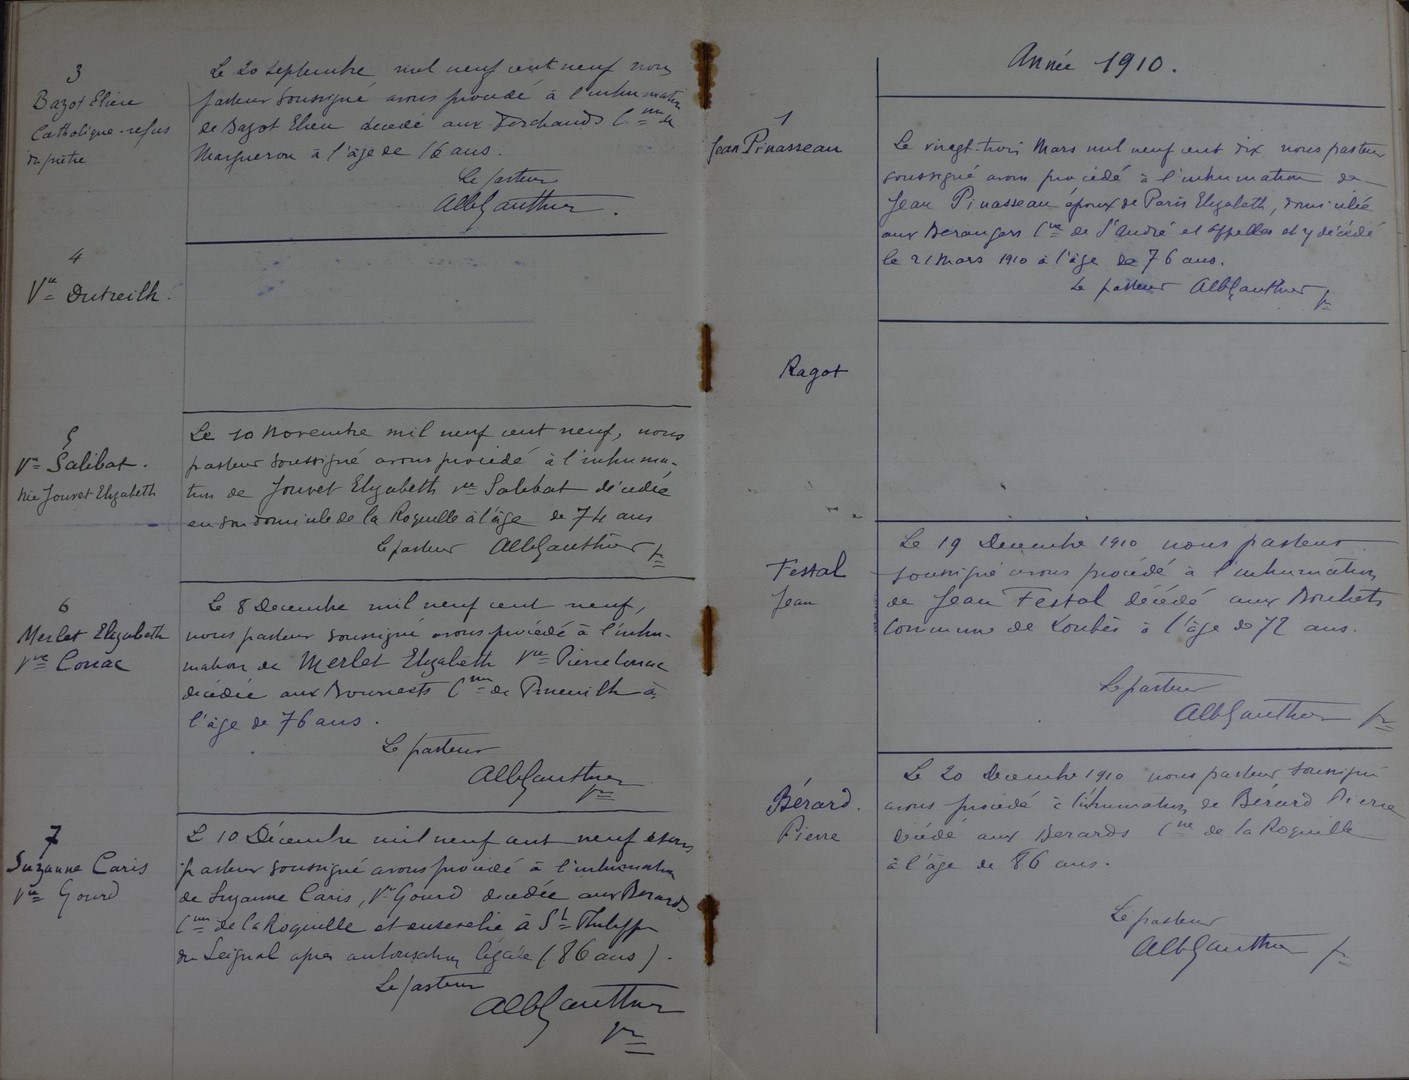 3
Bazot Elien
Catholique-refus
du prêtre
Le 20 septembre mil neuf cent neuf nous
pasteur soussigné avons procédé à l'inhumation
de Bazot Elien décédé aux C^ne de
Margueron à l'âge de 16 ans.
Le pasteur
AlbGauthier
4
V^ve Dutreilh.
5
V^ve Salibat.
née Jouvet Elizabeth
Le 10 Novembre mil neuf cent neuf, nous
pasteur soussigné avons procédé à l'inhuma-
tion de Jouvet Elizabeth v^ve Salibat décédée
en son domicile de la Roquille à l'âge de 74 ans
Le pasteur AlbGauthier
6
Merlet Elizabeth
V^ve Conac
Le 8 Decembre mil neuf cent neuf,
nous pasteur soussigné avons procédé à l'inhu-
mation de Merlet Elizabeth V^ve Pierre Conac
décédée aux C^ne de Pineuilh à
l'âge de 76 ans.
Le pasteur
AlbGauthier
7
Suzanne Caris
V^ve Gourd
Le 10 Décembre mil neuf cent neuf
pasteur soussigné avons procédé à l'inhumation
de Suzanne Caris, V^ve Gourd décédée aux Berards
C^ne de la Roquille et ensevelie à S^t Philippe
du Seignal après autorisation légale (86 ans).
Le pasteur
AlbGauthier
Année 1910.
1
Jean Pinasseau
Le vingt-trois Mars mil neuf cent dix nous pasteur
soussigné avons procédé à l'inhumation de
Jean Pinasseau époux de Paris Elizabeth, domicilié
aux Berangers C^ne de S^t André et Appelles et y décédé
le 21 Mars 1910 à l'âge de 76 ans.
Le pasteur AlbGauthier
Ragot
Festal
Jean
Le 19 Decembre 1910 nous pasteur
soussigné avons procédé à l'inhumation
de Jean Festal décédé aux Bouhets
commune de Loubès à l'âge de 72 ans.
Le pasteur
AlbGauthier
Bérard.
Pierre
Le 20 Decembre 1910 nous pasteur soussigné
avons procédé à l'inhumation de Bérard Pierre
décédé aux Berards C^ne de la Roquille
à l'âge de 86 ans.
Le pasteur
AlbGauthier